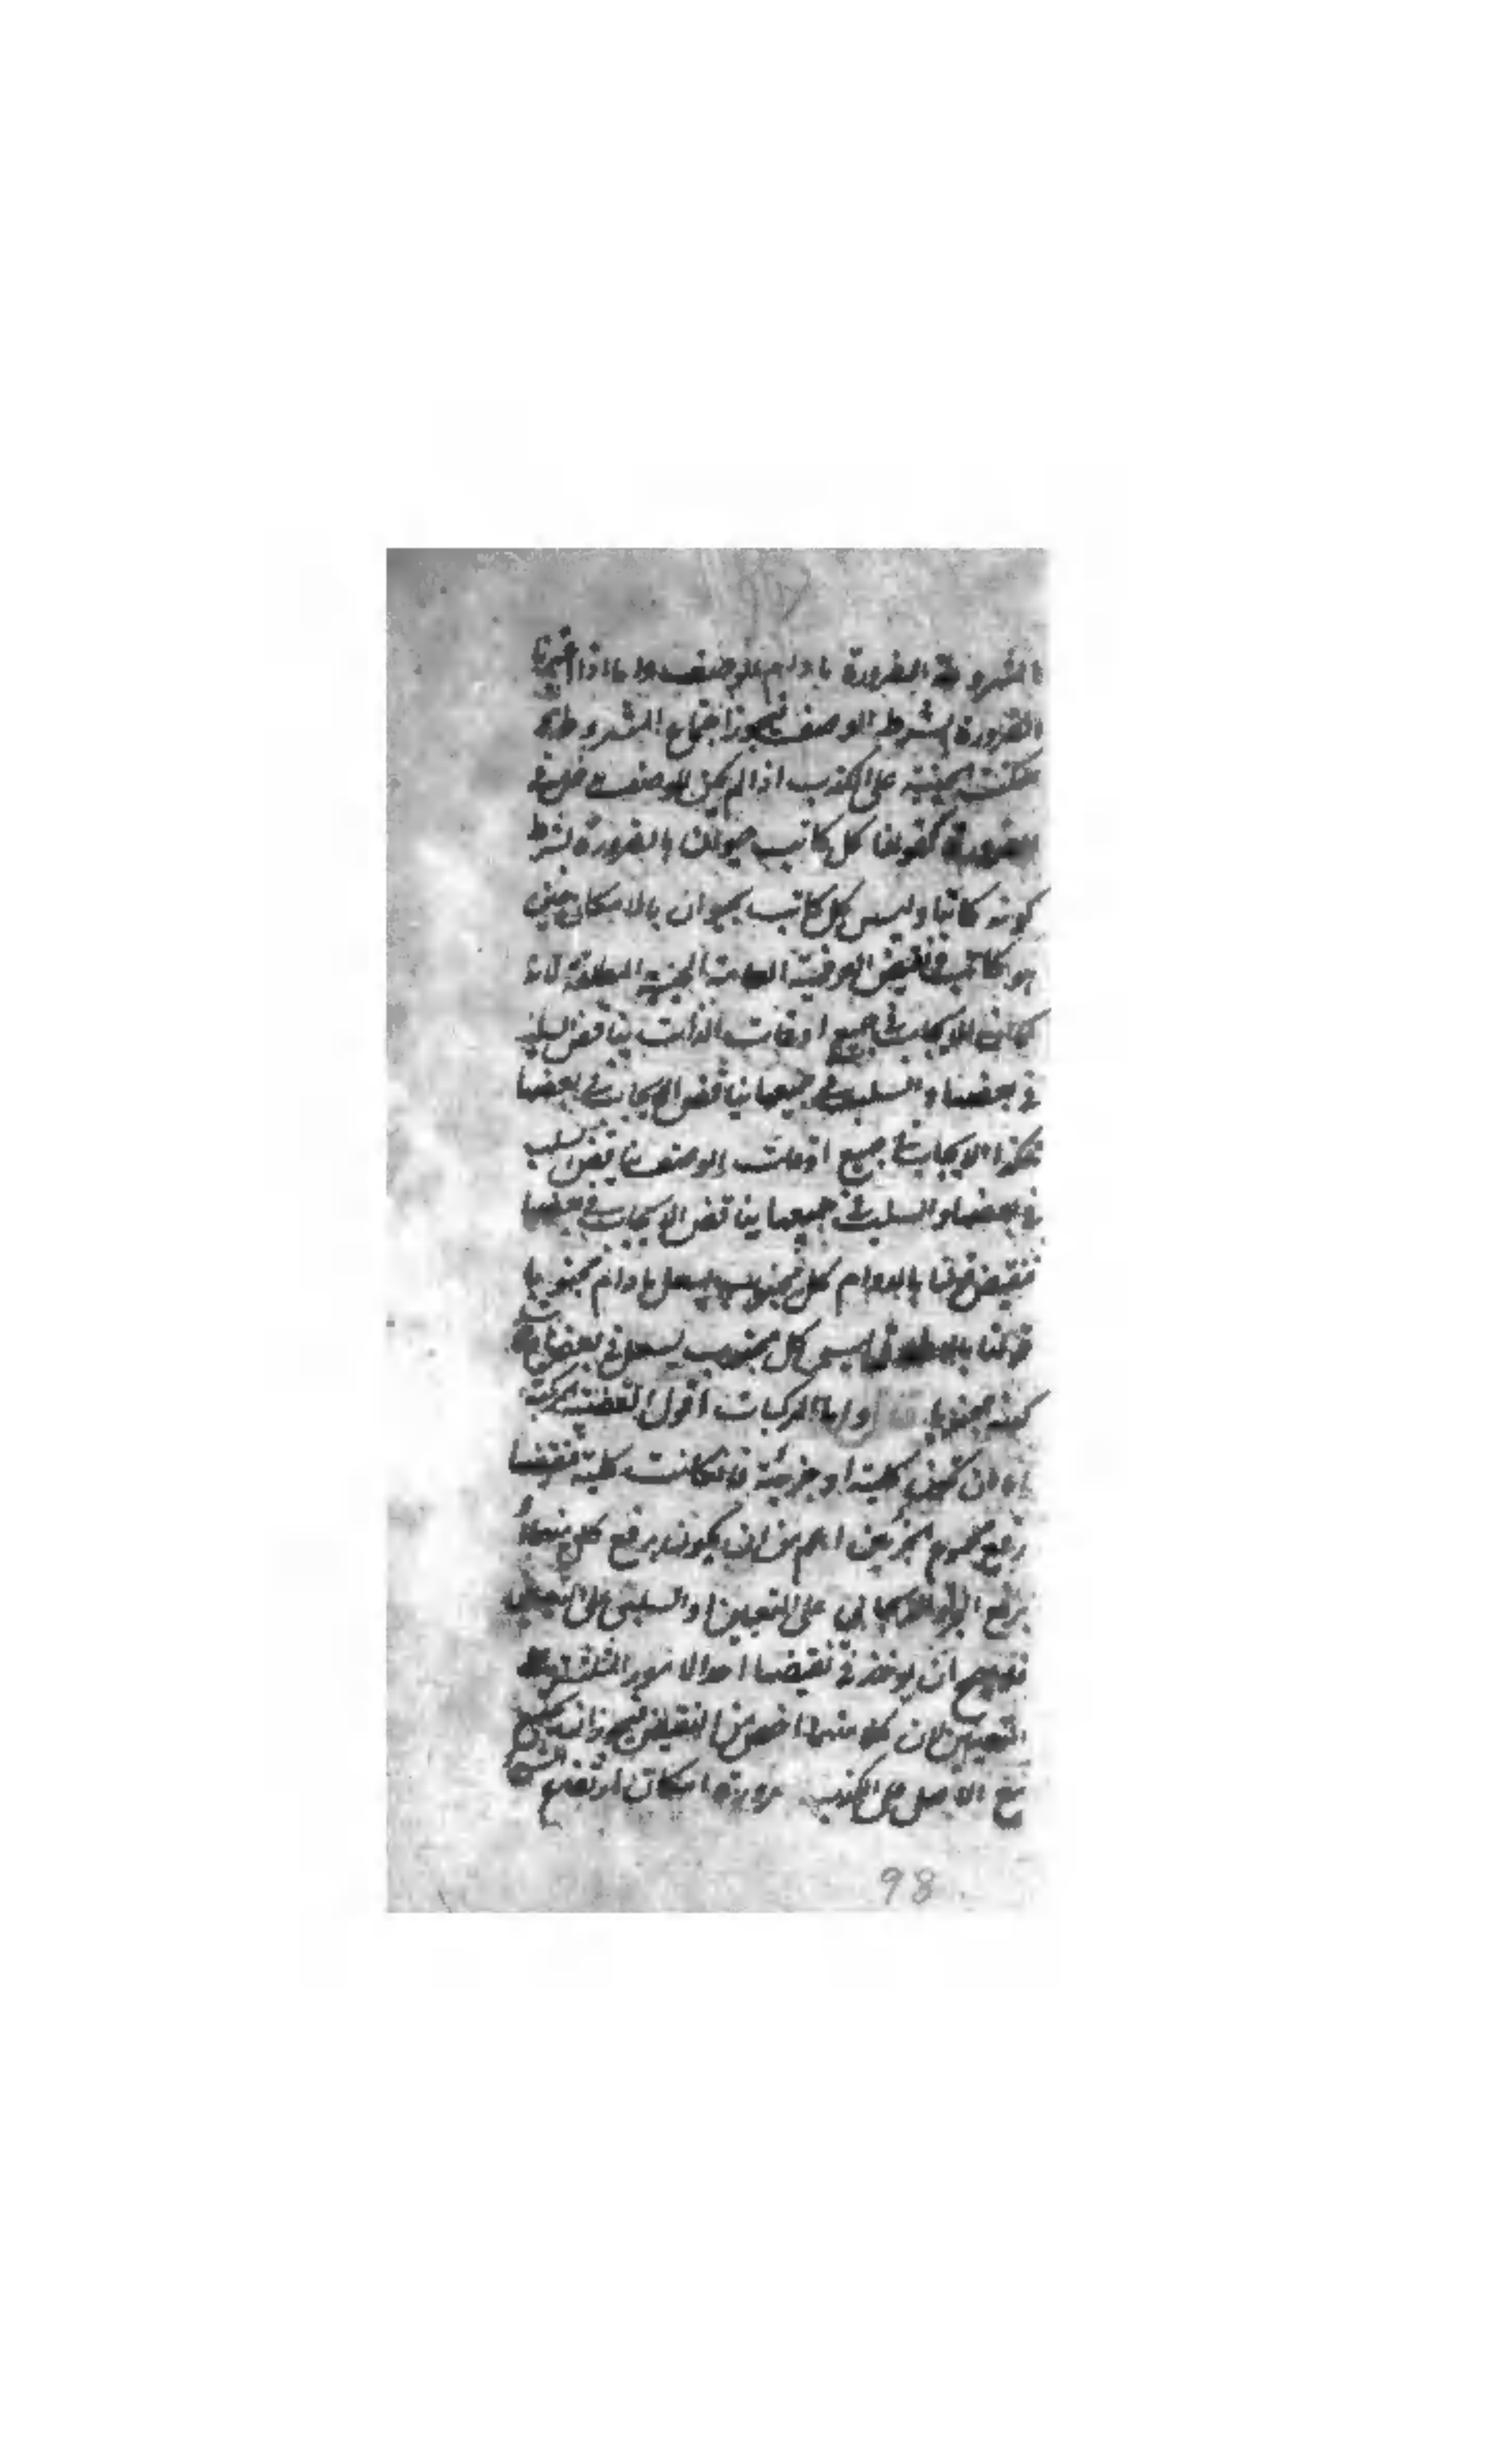 المشروطة الضرورة مادام الوصف واما اذا فسرنا
الضرورة بشرط الوصف فيجوز اجتماع المشروطة
الحينية على الكذب اذا لم يكن للوصف دخل في
الضرورة كقولنا كل كاتب حيوان بالضرورة بشرط
كونه كاتبا وليس كل كاتب بحيوان بالامكان حين
هو كاتب ونقيض العرفية العامة الحينية المطلقة لانه
كما ان الايجاب في جميع اوقات الذات يناقض السلب
في بعضها والسلب في جميعها يناقض الايجاب في بعضها
فكذا الايجاب في جميع اوقات الوصف يناقض السلب
في بعضها والسلب في جميعها يناقض الايجاب في بعضها
فنقيض قولنا بالدوام كل مجنوب يسعل مادام مجنوبا
قولنا بالاطلاق ليس كل مجنوب يسعل في بعض اوقات
كونه مجنوبا قال واما المركبات اقول القضية المركبة
اما ان تكون كلية او جزئية فان كانت كلية فنقيضها
رفع مجموع الجزئين اعم من ان يكون برفع كل منهما او
برفع الجزء الايجابي على التعيين او السلبي على التعيين
ان يوخذ في نقيضها احد الامور الثلثة
التعيين لان كلا منها اخص من النقيض فيجوز ان
مع الاصل على الكذب ضرورة امكان ارتفاع
98